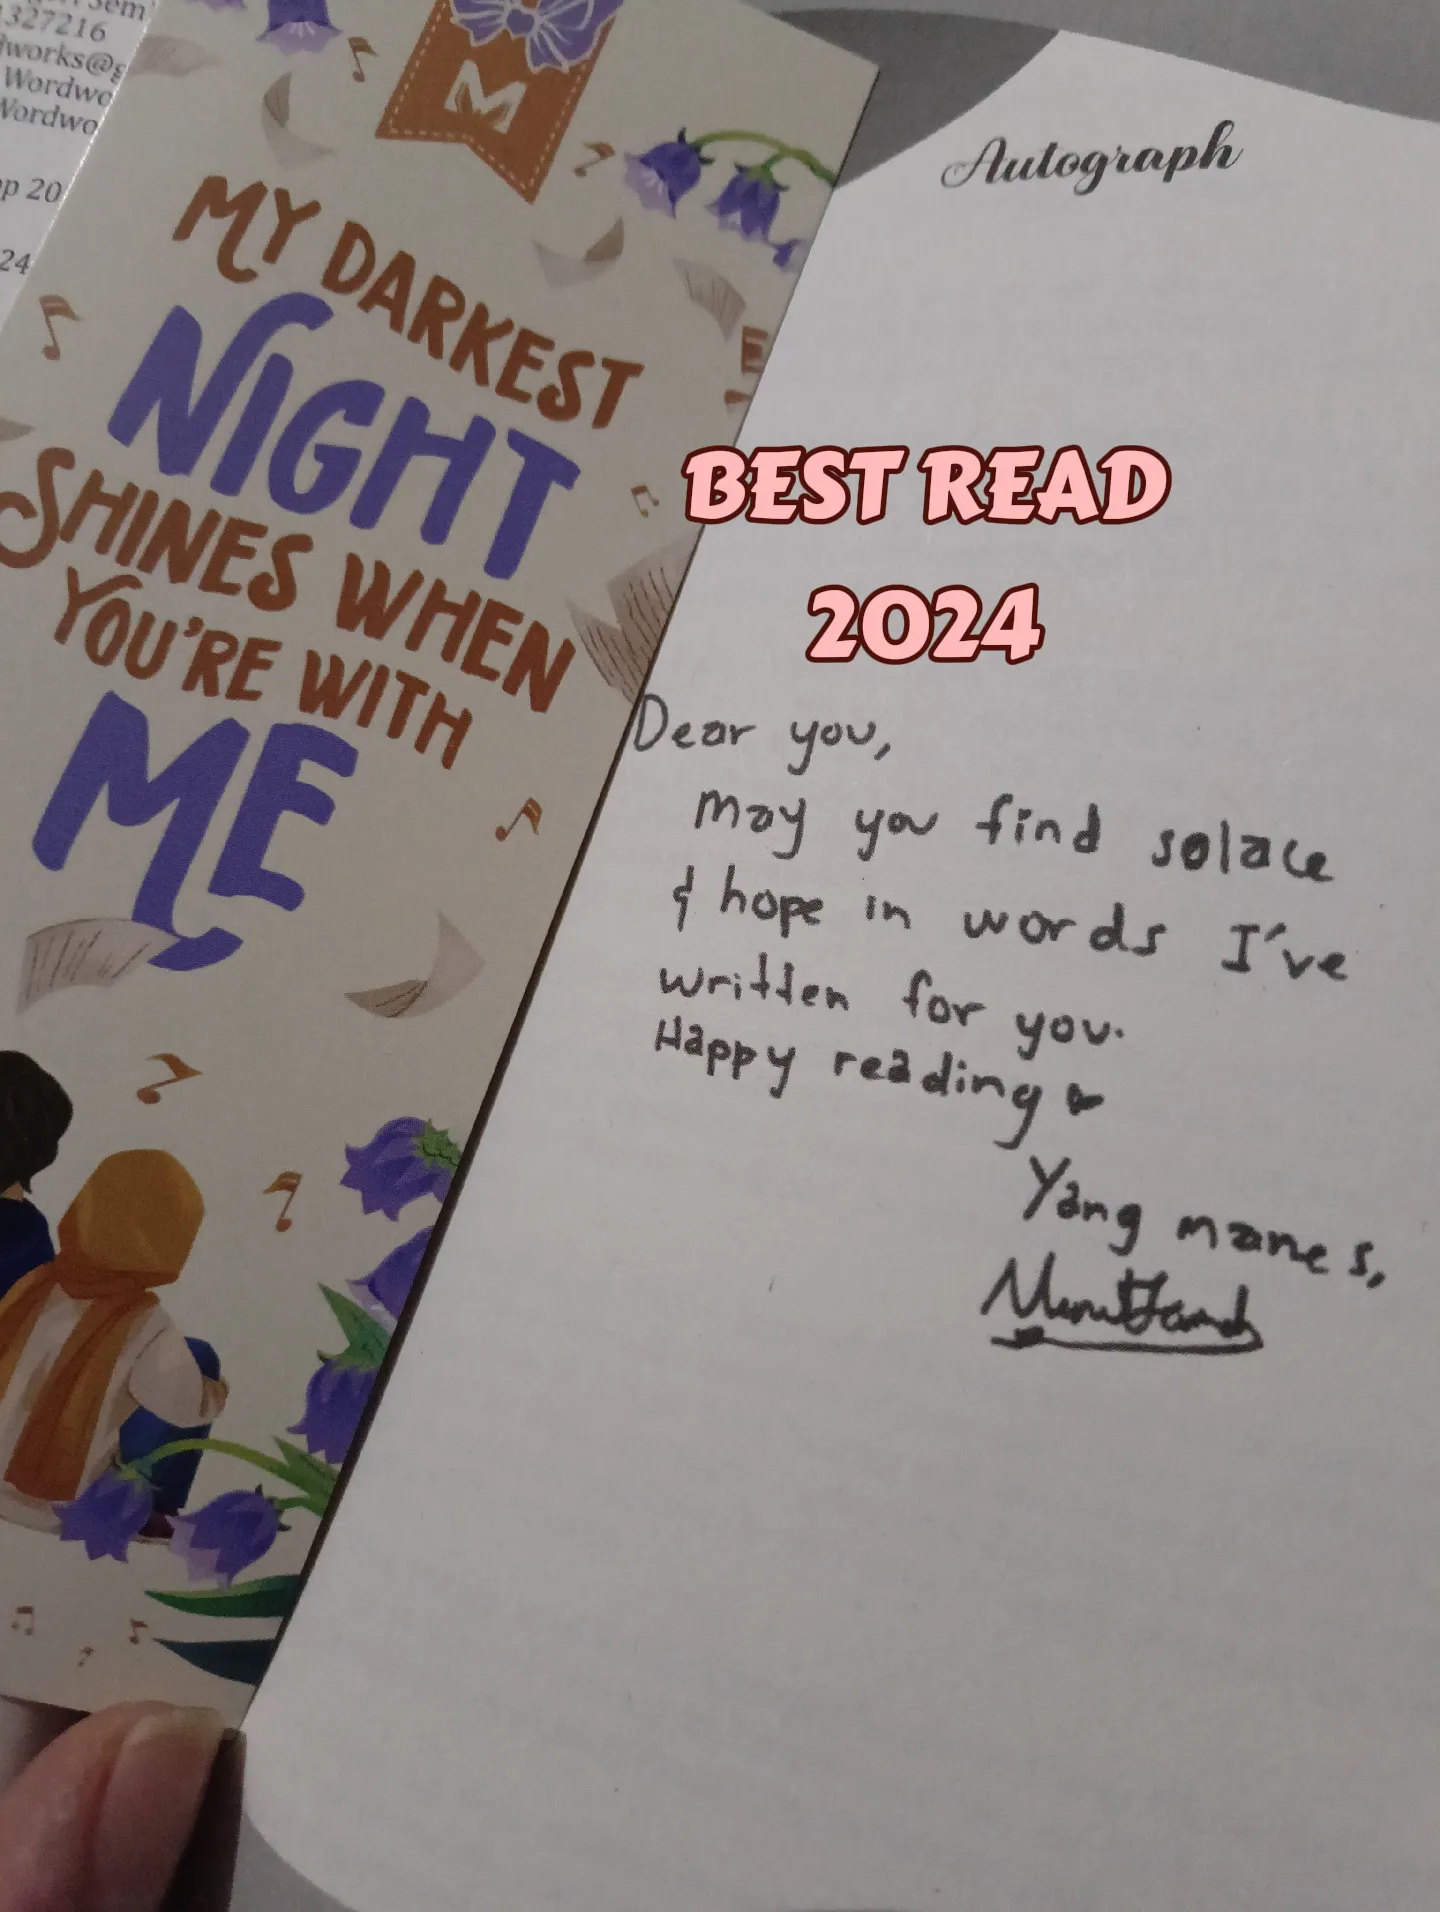 327216
Wordwo
Wordwo
pp 20
24
M
MY DARKEST
NIGHT
SHINES WHEN
YOU'RE WITH
ME
Autograph
BEST READ
2024
Dear you,
May you find solace
& hope in words I've
written for you.
Happy reading
Yang manes,